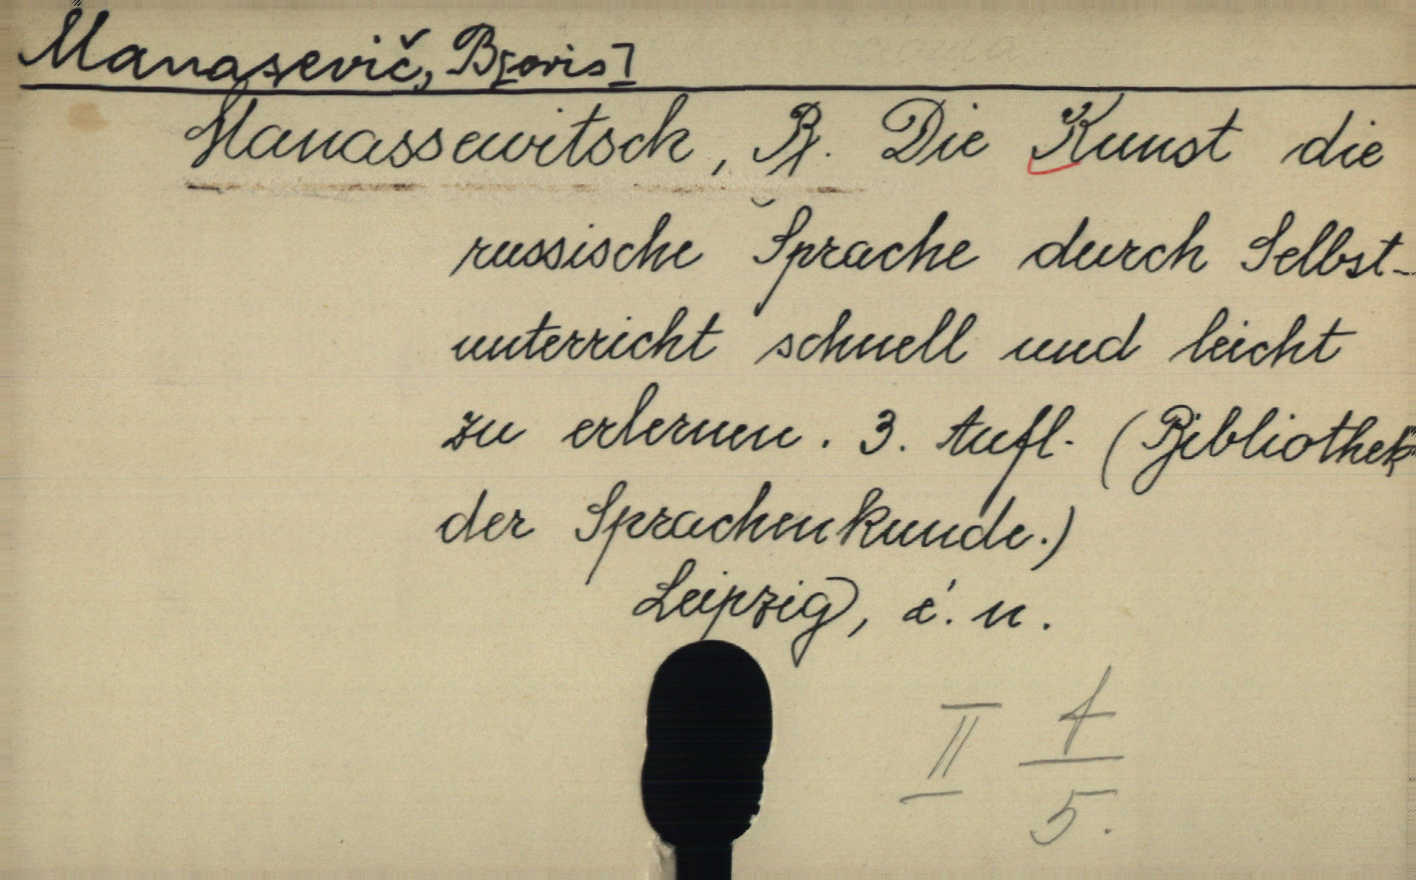 Manasevič, B[oris]
Manassewitsch, B. Die Kunst die
russische Sprache durch Selbst-
unterricht schnell und leicht
zu erlernen. 3. Aufl. (Bibliothek
der Sprachenkunde.)
Leipzig, é. n.
II 4
5.